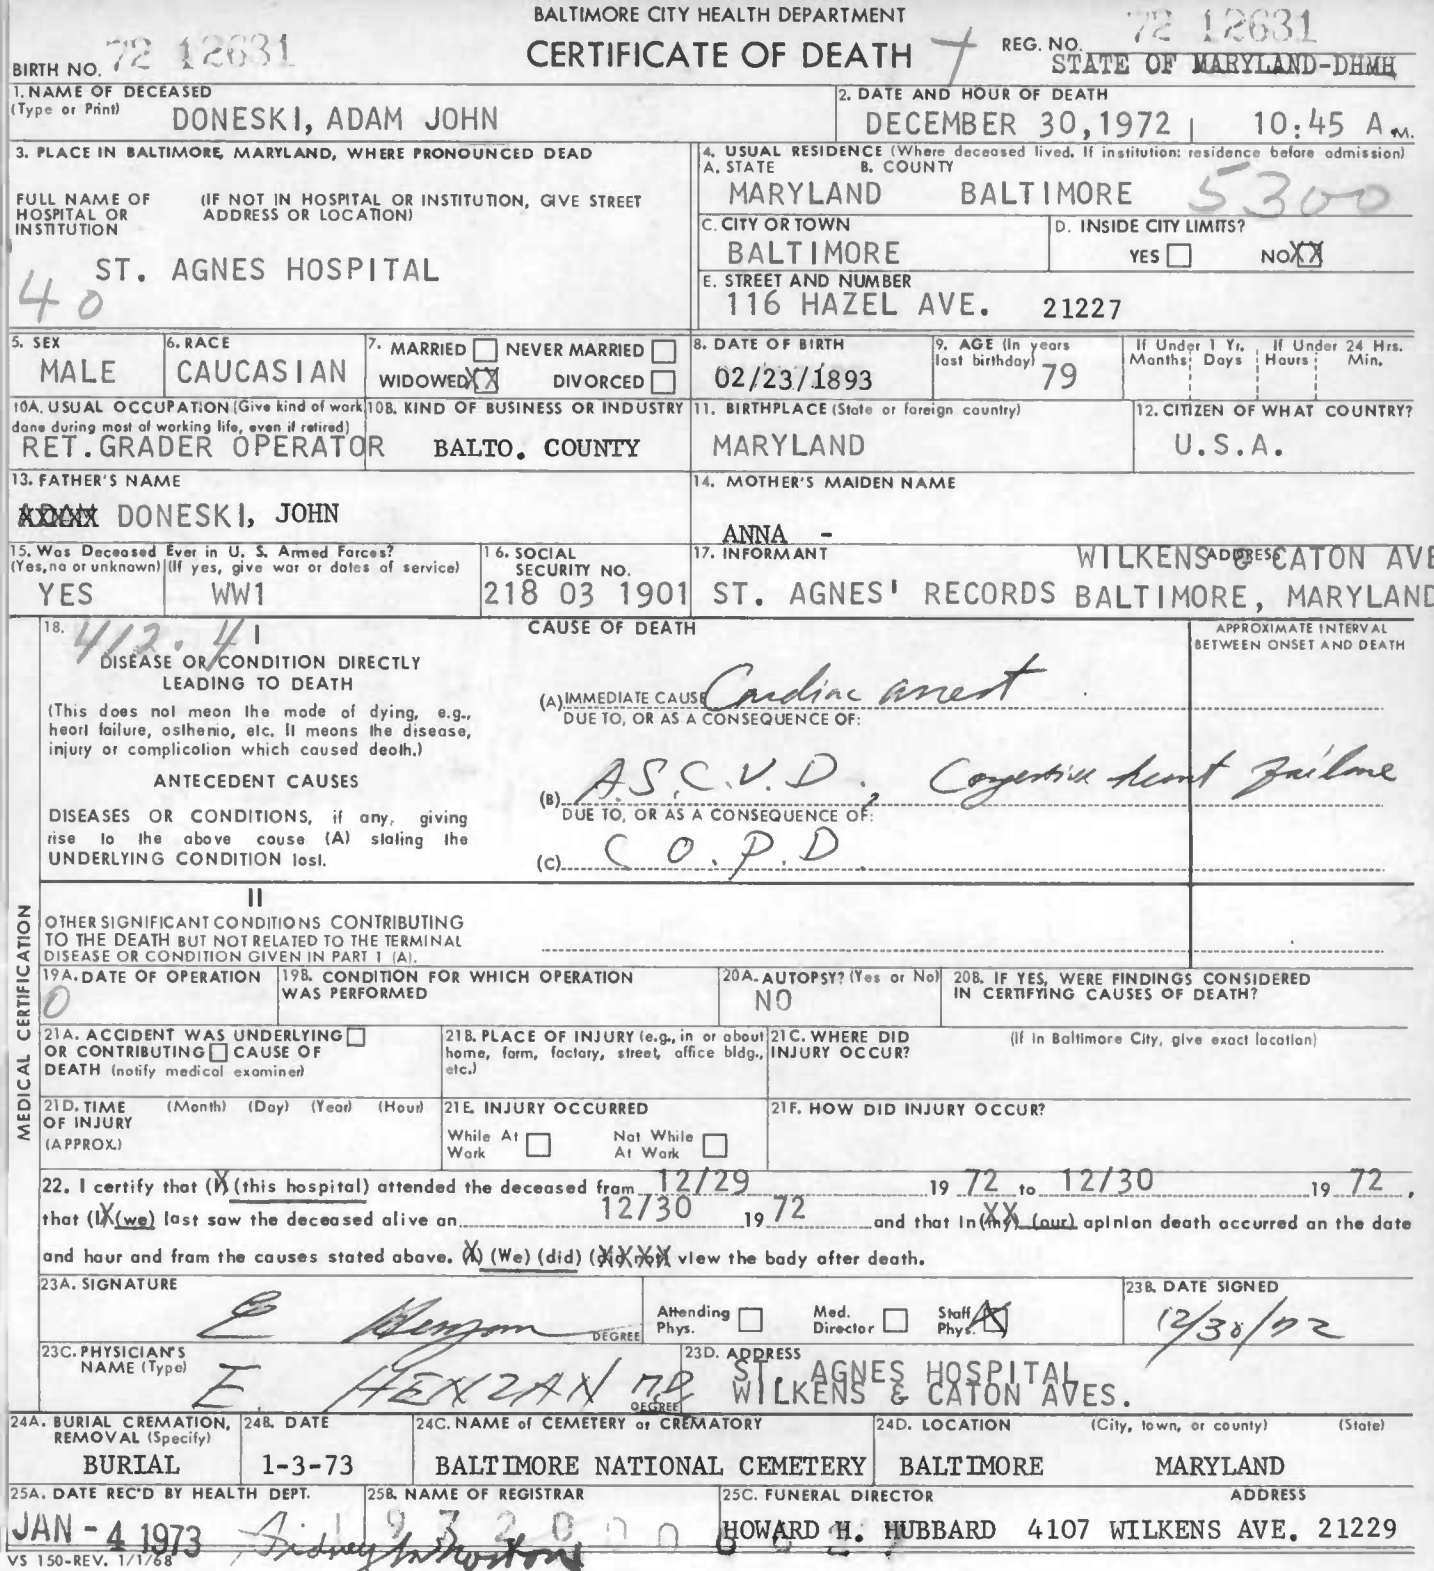 BALTIMORE CITY HEALTH DEPARTMENT
CERTIFICATE OF DEATH
BIRTH NO. 72 12631
REG. NO. 72 12631
STATE OF MARYLAND-DHMH
1. NAME OF DECEASED
(Type or Print) DONESKI, ADAM JOHN
2. DATE AND HOUR OF DEATH
DECEMBER 30,1972 10:45 A.M.
3. PLACE IN BALTIMORE, MARYLAND, WHERE PRONOUNCED DEAD
FULL NAME OF HOSPITAL OR INSTITUTION
(IF NOT IN HOSPITAL OR INSTITUTION, GIVE STREET ADDRESS OR LOCATION)
ST. AGNES HOSPITAL
40
4. USUAL RESIDENCE (Where deceased lived. If institution: residence before admission)
A. STATE B. COUNTY
MARYLAND BALTIMORE 5300
C. CITY OR TOWN
BALTIMORE
D. INSIDE CITY LIMITS?
YES NO XX
E. STREET AND NUMBER
116 HAZEL AVE. 21227
5. SEX
MALE
6. RACE
CAUCASIAN
7. MARRIED NEVER MARRIED
WIDOWED XX DIVORCED
8. DATE OF BIRTH
02/23/1893
9. AGE (In years last birthday) 79
If Under 1 Yr. If Under 24 Hrs.
Months Days Hours Min.
10A. USUAL OCCUPATION (Give kind of work done during most of working life, even if retired)
RET.GRADER OPERATOR
10B. KIND OF BUSINESS OR INDUSTRY
BALTO. COUNTY
11. BIRTHPLACE (State or foreign country)
MARYLAND
12. CITIZEN OF WHAT COUNTRY?
U.S.A.
13. FATHER'S NAME
DONESKI, JOHN
14. MOTHER'S MAIDEN NAME
ANNA -
15. Was Deceased Ever in U. S. Armed Forces?
(Yes, no or unknown) (If yes, give war or dates of service)
YES WW1
16. SOCIAL SECURITY NO.
218 03 1901
17. INFORMANT ADDRESS
WILKENS & CATON AVE
ST. AGNES' RECORDS BALTIMORE, MARYLAND
MEDICAL CERTIFICATION
18. 412.4 I
DISEASE OR CONDITION DIRECTLY
LEADING TO DEATH
(This does not mean the mode of dying, e.g.,
heart failure, asthenia, etc. It means the disease,
injury or complication which caused death.)
ANTECEDENT CAUSES
DISEASES OR CONDITIONS, if any, giving
rise to the above cause (A) stating the
UNDERLYING CONDITION last.
CAUSE OF DEATH
APPROXIMATE INTERVAL
BETWEEN ONSET AND DEATH
(A) IMMEDIATE CAUSE Cardiac arrest
DUE TO, OR AS A CONSEQUENCE OF:
(B) A.S.C.V.D., Congestive heart failure
DUE TO, OR AS A CONSEQUENCE OF:
(C) C O.P.D.
II
OTHER SIGNIFICANT CONDITIONS CONTRIBUTING
TO THE DEATH BUT NOT RELATED TO THE TERMINAL
DISEASE OR CONDITION GIVEN IN PART 1 (A).
19A. DATE OF OPERATION
0
19B. CONDITION FOR WHICH OPERATION
WAS PERFORMED
20A. AUTOPSY? (Yes or No)
NO
20B. IF YES, WERE FINDINGS CONSIDERED
IN CERTIFYING CAUSES OF DEATH?
21A. ACCIDENT WAS UNDERLYING
OR CONTRIBUTING CAUSE OF
DEATH (notify medical examiner)
21B. PLACE OF INJURY (e.g., in or about
home, farm, factory, street, office bldg.,
etc.)
21C. WHERE DID
INJURY OCCUR?
(If in Baltimore City, give exact location)
21D. TIME (Month) (Day) (Year) (Hour)
OF INJURY
(APPROX.)
21E. INJURY OCCURRED
While At Work Not While At Work
21F. HOW DID INJURY OCCUR?
22. I certify that (I) (this hospital) attended the deceased from 12/29 19 72 to 12/30 19 72,
that (I) (we) last saw the deceased alive on 12/30 19 72 and that in (my) (our) opinion death occurred on the date
and hour and from the causes stated above. (I) (We) (did) (did not) view the body after death.
23A. SIGNATURE
E DEGREE
Attending Phys. Med. Director Staff Phys. X
23B. DATE SIGNED
12/30/72
23C. PHYSICIAN'S
NAME (Type)
E. MD
DEGREE
23D. ADDRESS
ST. AGNES HOSPITAL
WILKENS & CATON AVES.
24A. BURIAL CREMATION,
REMOVAL (Specify)
BURIAL
24B. DATE
1-3-73
24C. NAME of CEMETERY or CREMATORY
BALTIMORE NATIONAL CEMETERY
24D. LOCATION (City, town, or county) (State)
BALTIMORE MARYLAND
25A. DATE REC'D BY HEALTH DEPT.
JAN - 4 1973
25B. NAME OF REGISTRAR
Sidney
25C. FUNERAL DIRECTOR ADDRESS
HOWARD H. HUBBARD 4107 WILKENS AVE. 21229
VS 150-REV. 1/1/68